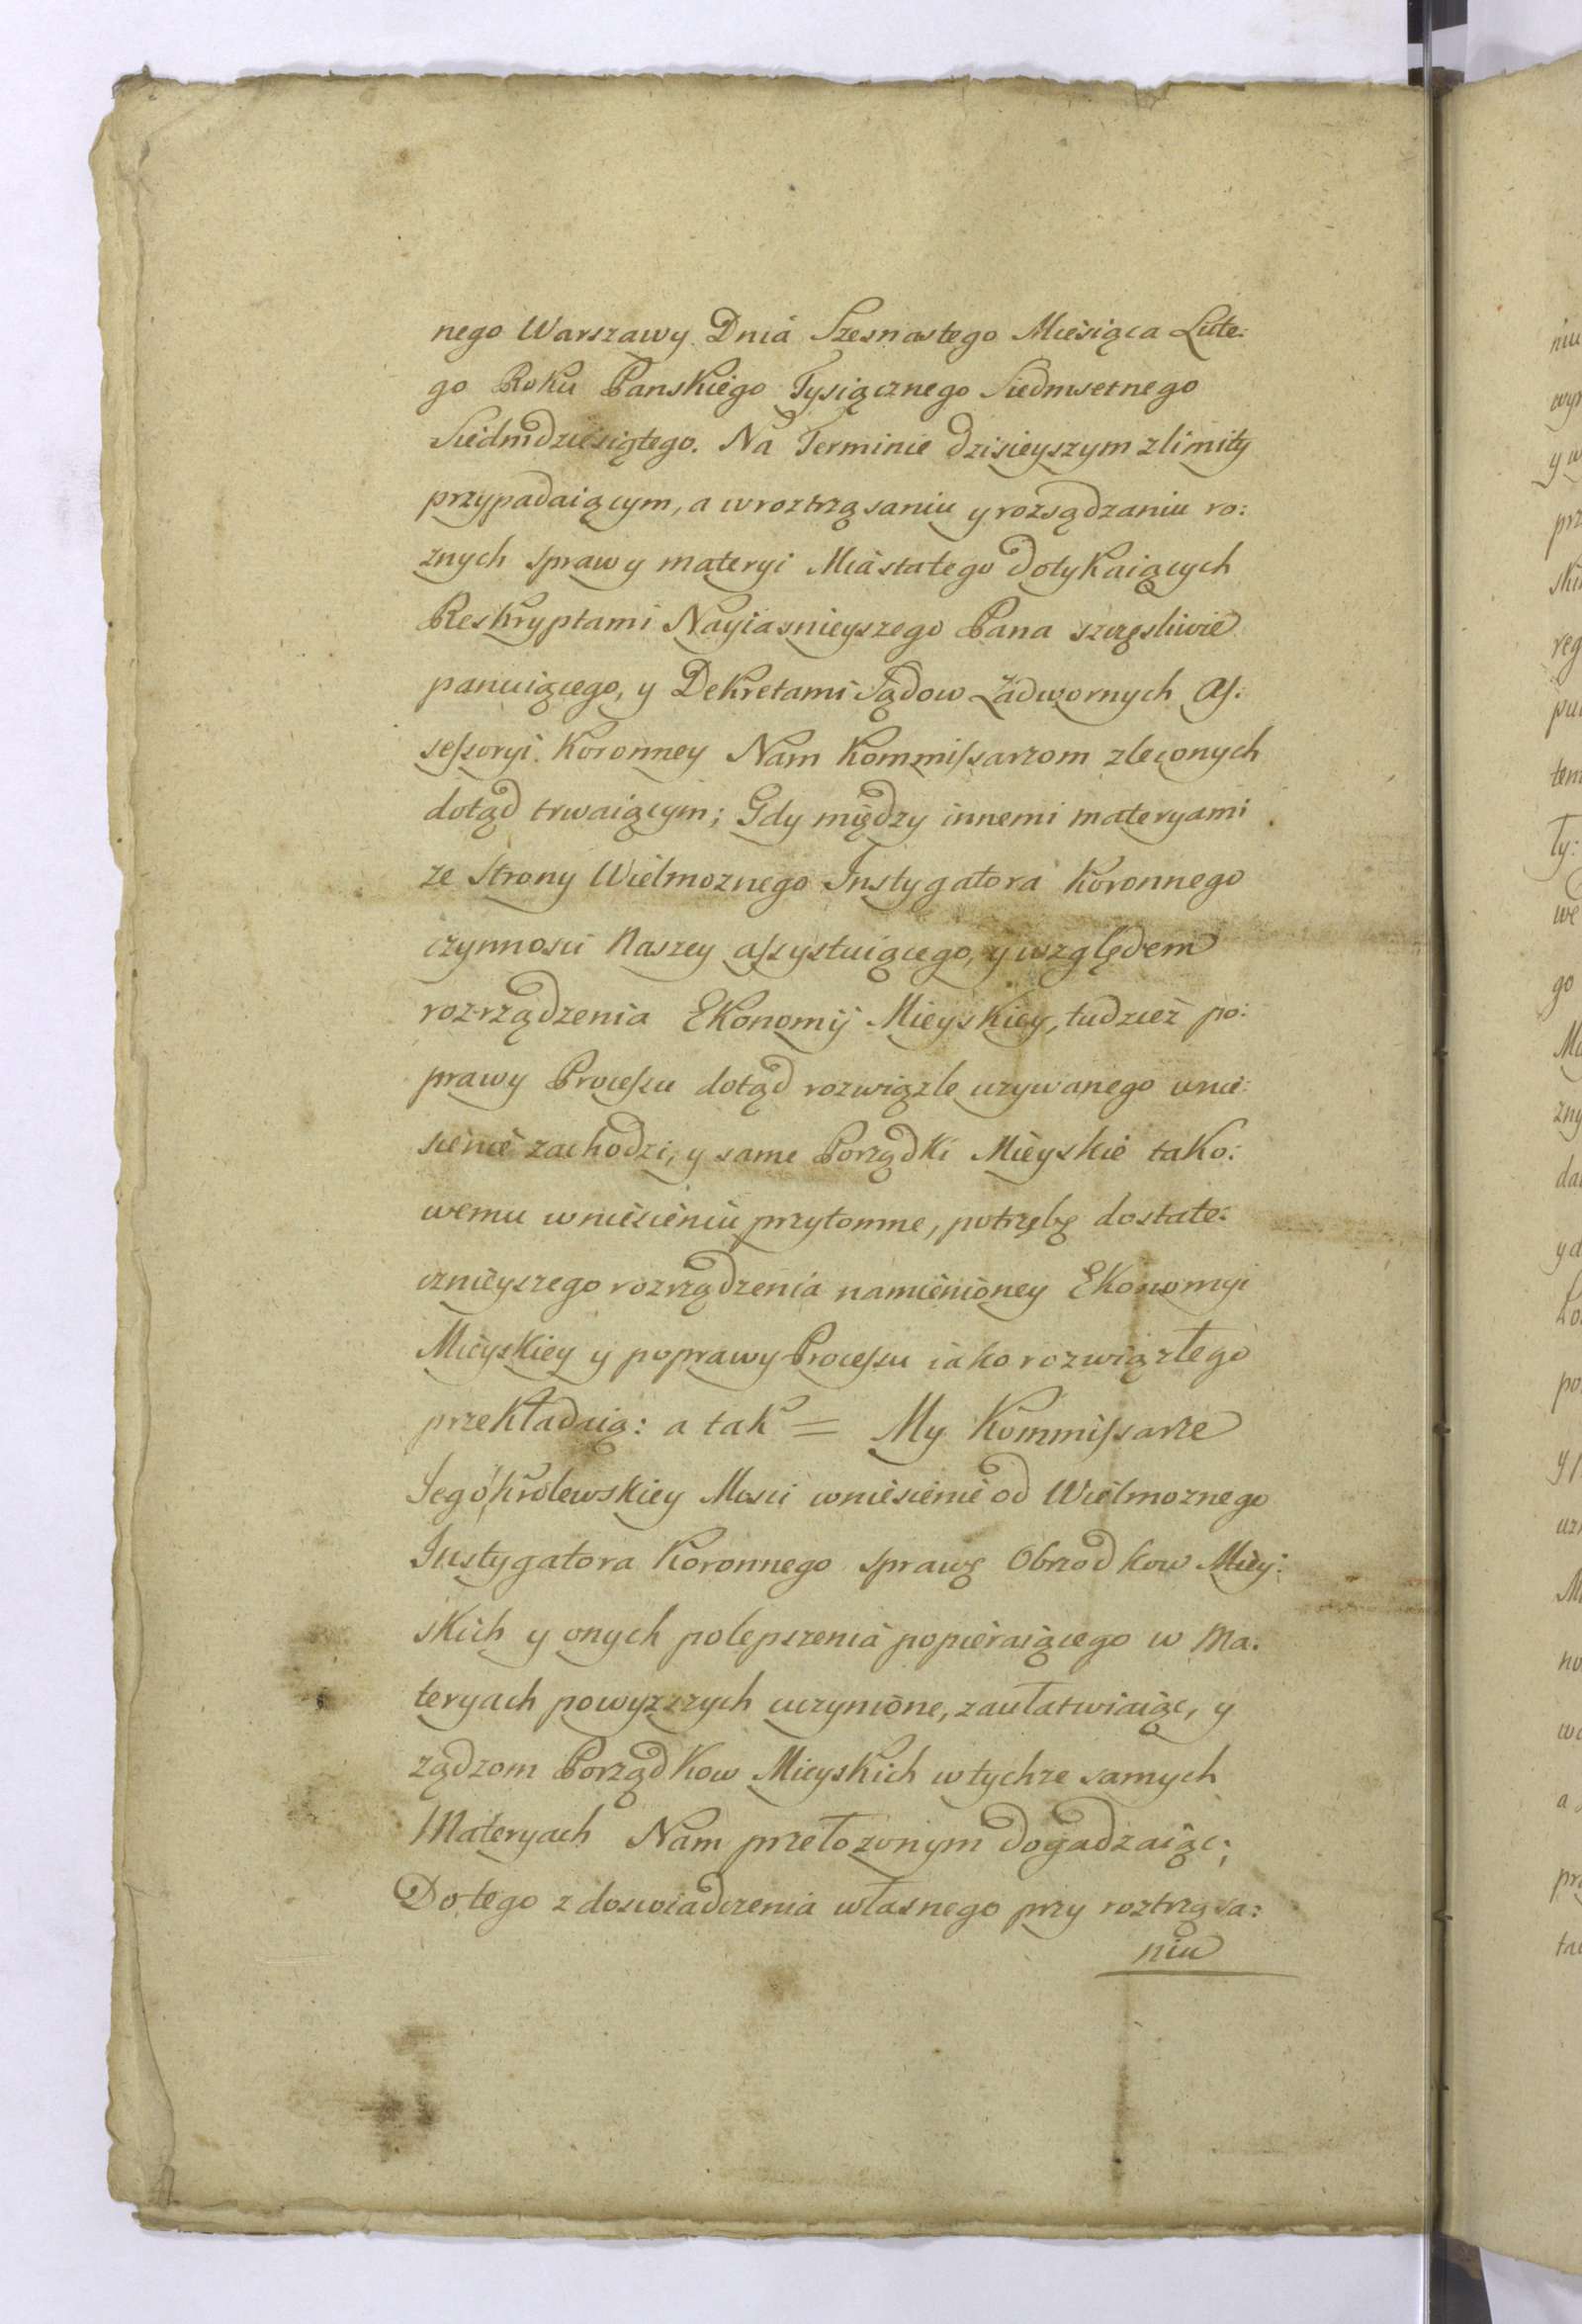 nego Warszawy Dnia Szesnastego Miesiąca Lute:
go Roku Panskiego Tysiącznego Siedmsetnego
Siedmdziesiątego. Na Terminie dzisieyszym zlimity
przypadaiącym, a wroztrząsaniu y rozsądzaniu ro:
znych spraw y materyi Miasta tego dotykaiących
Reskryptami Nayiasnieyszego Pana szczęsliwie
panuiącego, y Dekretami Sądow Zadwornych As:
sessoryi Koronney Nam Kommissarzom zleconych
dotąd trwaiącym; Gdy między innemi materyami
ze Strony Wielmoznego Instygatora Koronnego
czynnosci Naszey assystuiącego, y względem
rozrządzenia Ekonomij Mieyskiey, tudzież po:
prawy Processu dotąd rozwiązle uzywanego wnie:
sienie zachodzi, y same Porządki Mieyskie tako:
wemu wniesieniu przytomne, potrzebę dostate:
cznieyszego rozrządzenia namienioney Ekonomyi
Mieyskiey y poprawy Processu iako rozwiązłego
przekładaią: a tak = My Kommissarze
Jego Krolewskiey Mosci wniesienie od Wielmoznego
Instygatora Koronnego sprawę Obrzodkow Miey:
skich y onych polepszenia popieraiącego w Ma.
teryach powyzszych uczynione, zaułatwiaiąc, y
ządzom Porządkow Mieyskich wtychze samych
Materyach Nam przełozonym dogadzaiąc;
Do tego z doswiadczenia własnego przy roztrząsa:
niu